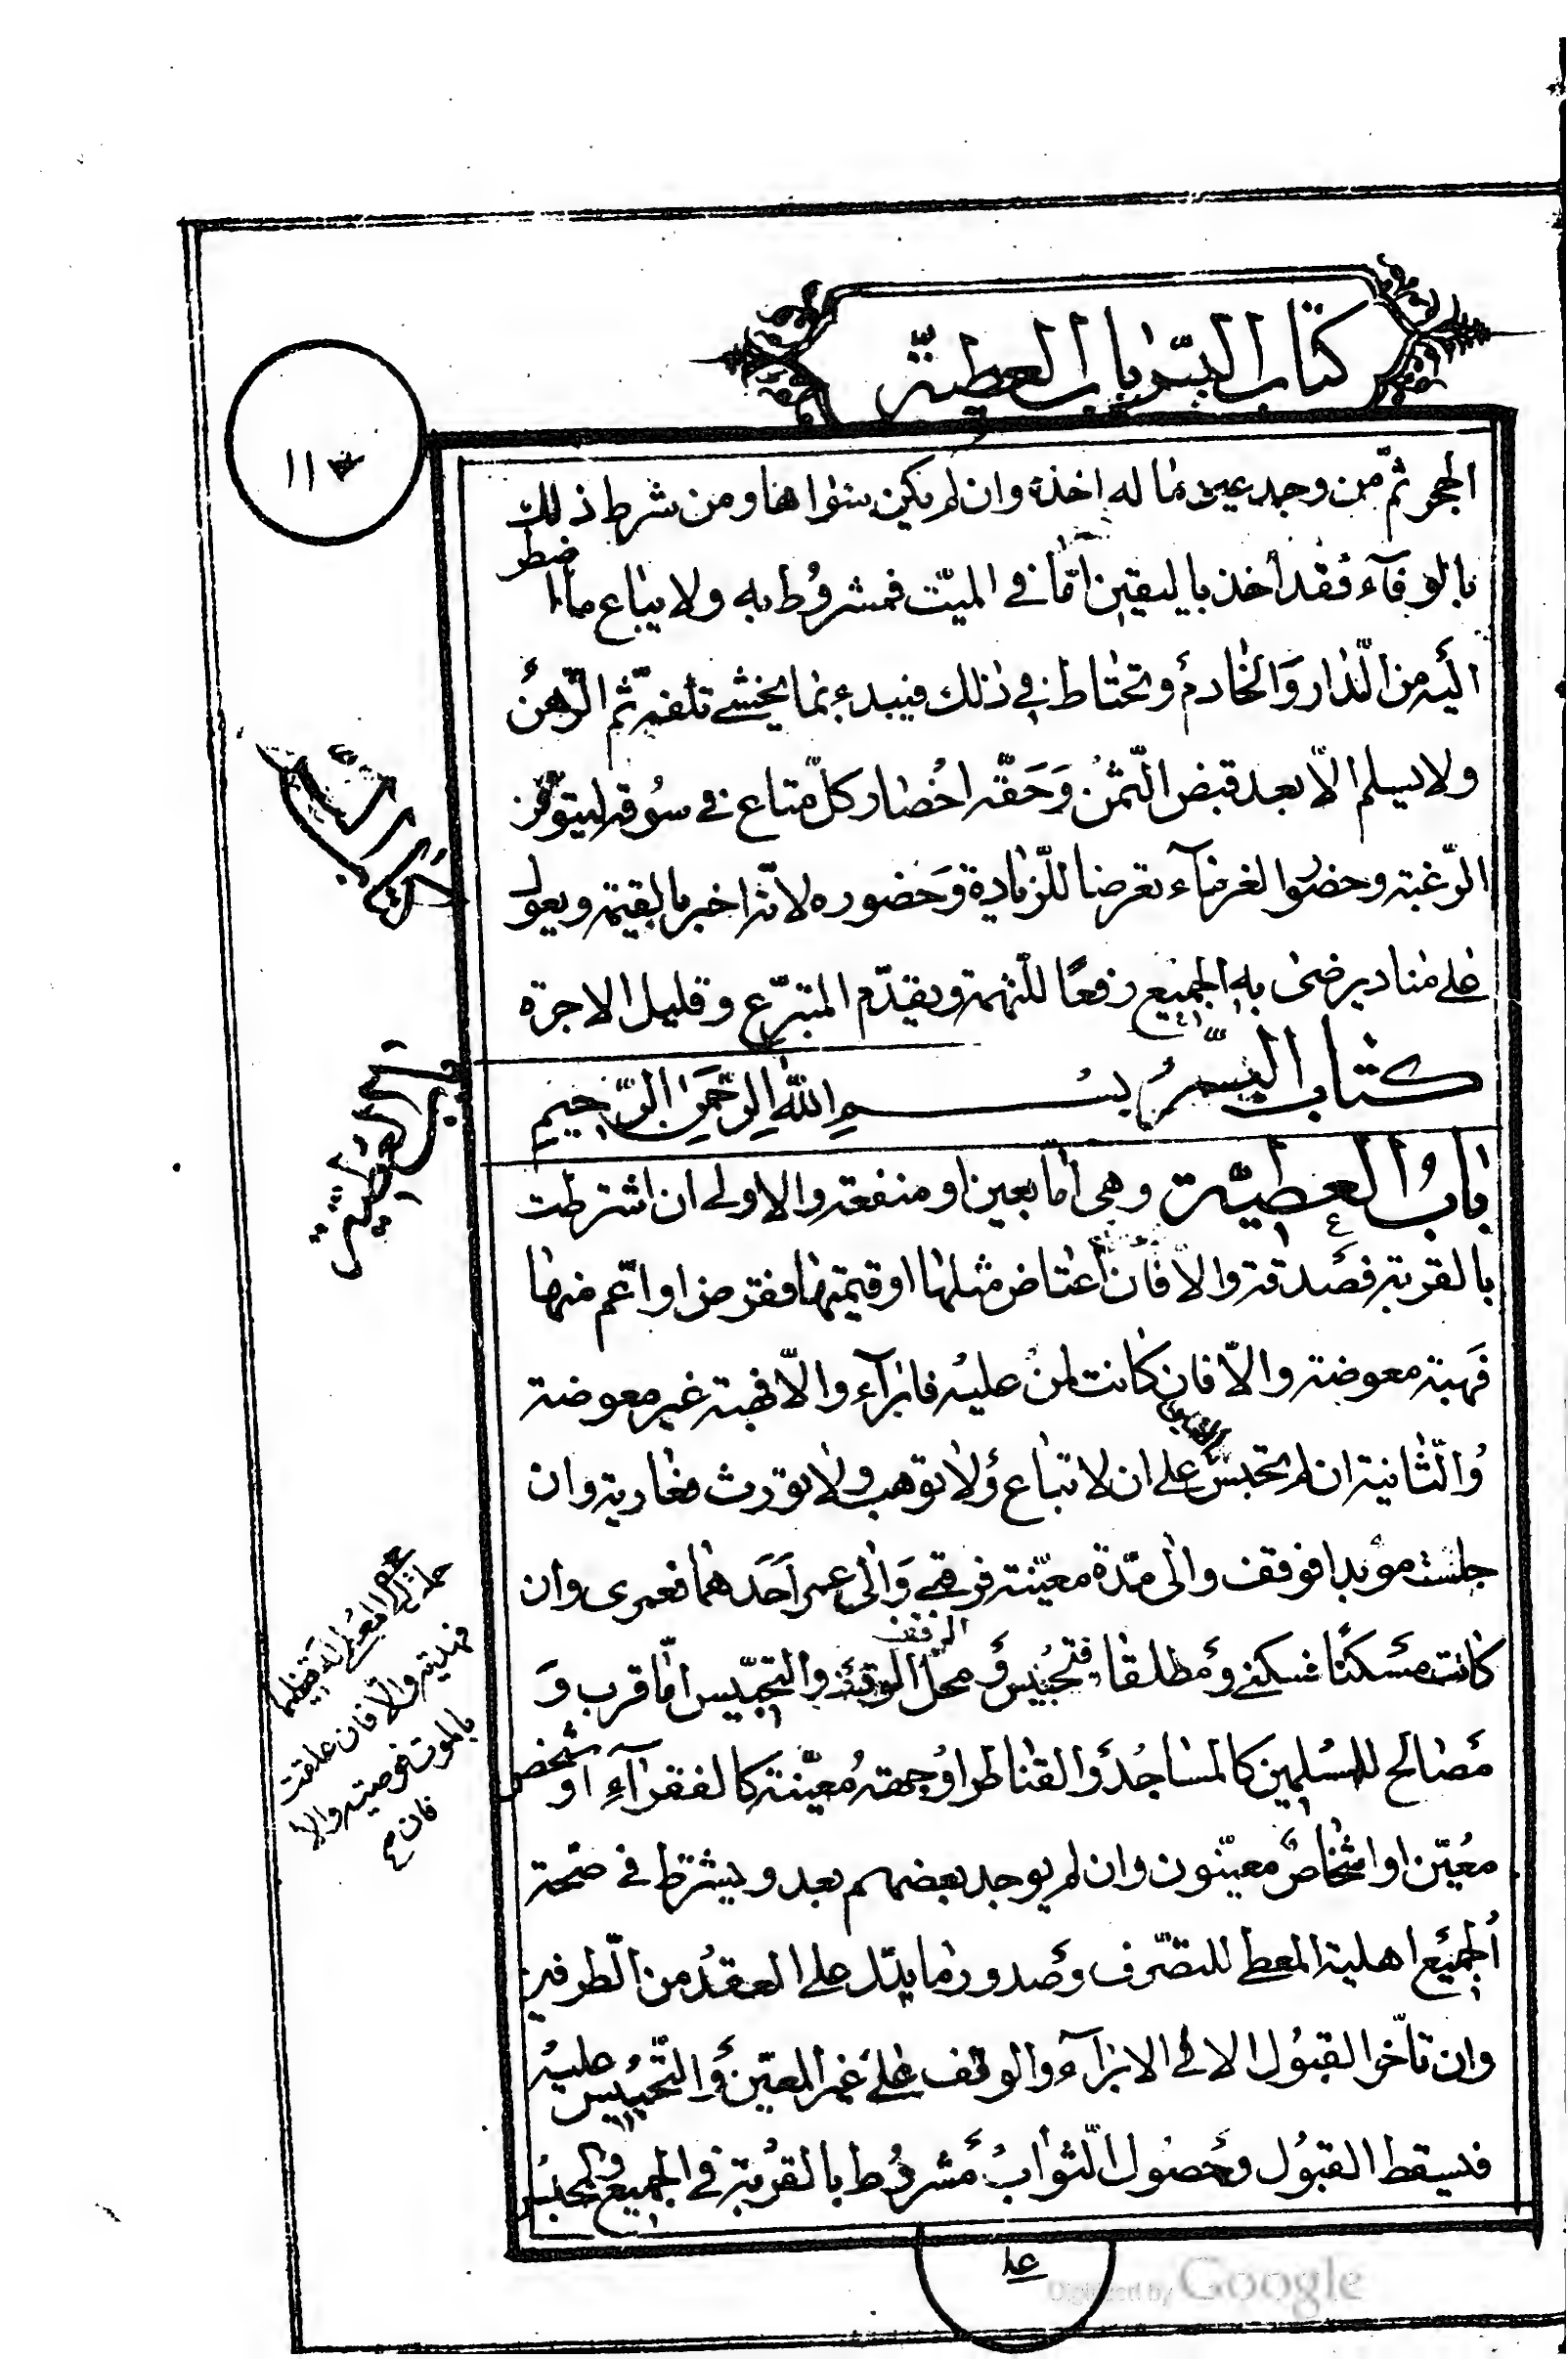 كتاب البر باب العطية
١١٣
الحجر ثمّ من وجد عين ماله اخذه وان لم يكن سواها ومن شرط ذلك
بالوفآء فقد أخذ باليقين امّا في الميّت فمشروط به ولا يباع ما اضطر
اليه من الدّار والخادم وتحتاط في ذلك فيبدء بما يخشى تلفه ثم الرّهن
ولا يسلم الّا بعد قبض الثّمن وحقّه احضار كلّ متاع في سوقه ليتوفّر
الرّغبة وحضور الغرمآء تعرضا للزّيادة وحضوره لانّه اخبر بالقيمة ويعول
على مناد يرضى به الجميع رفعًا للتّهمة ويقدّم المتبرّع وقليل الاجرة
كتاب البر بسم الله الرّحمن الرّحيم
كتاب البر
باب العطيّة وهي امّا بعين او منفعة والاولى ان اشترطت
باب العطية
بالقربة فصدقة والّا فان اعتاض مثلها او قيمتها فقرض او اعم منها
فهبة معوضة والّا فان كانت لمن عليه فابرآء والّا فهبة غير معوضة
والثّانية ان لم تحبس على ان لا تباع ولا توهب ولا تورث فعارية وان
حبست مؤبدا فوقف والى مدّة معيّنة فرقبى والى عمر احدهما فعمرى وان
كانت مسكنًا فسكنى ومطلقا فتحبيس ومحل الوقف والتحبيس امّا قرب و
مصالح للمسلمين كالمساجد والقناطر او جهة معيّنة كالفقرآء او شخص
معيّن او اشخاص معينون وان لم يوجد بعضهم بعد ويشترط في صحة
الجميع اهلية المعطي للتصرّف وصدور ما يدّل على العقد من الطّرفين
وان تأخر القبول الا في الابرآء والوقف على غير المعيّن والتّحبيس عليه
فيسقط القبول وحصول الثّواب مشروط بالقربة في الجميع والحبس
فهدية والّا فان علقت
بالموت فوصية والا
فان
Digitized by Google